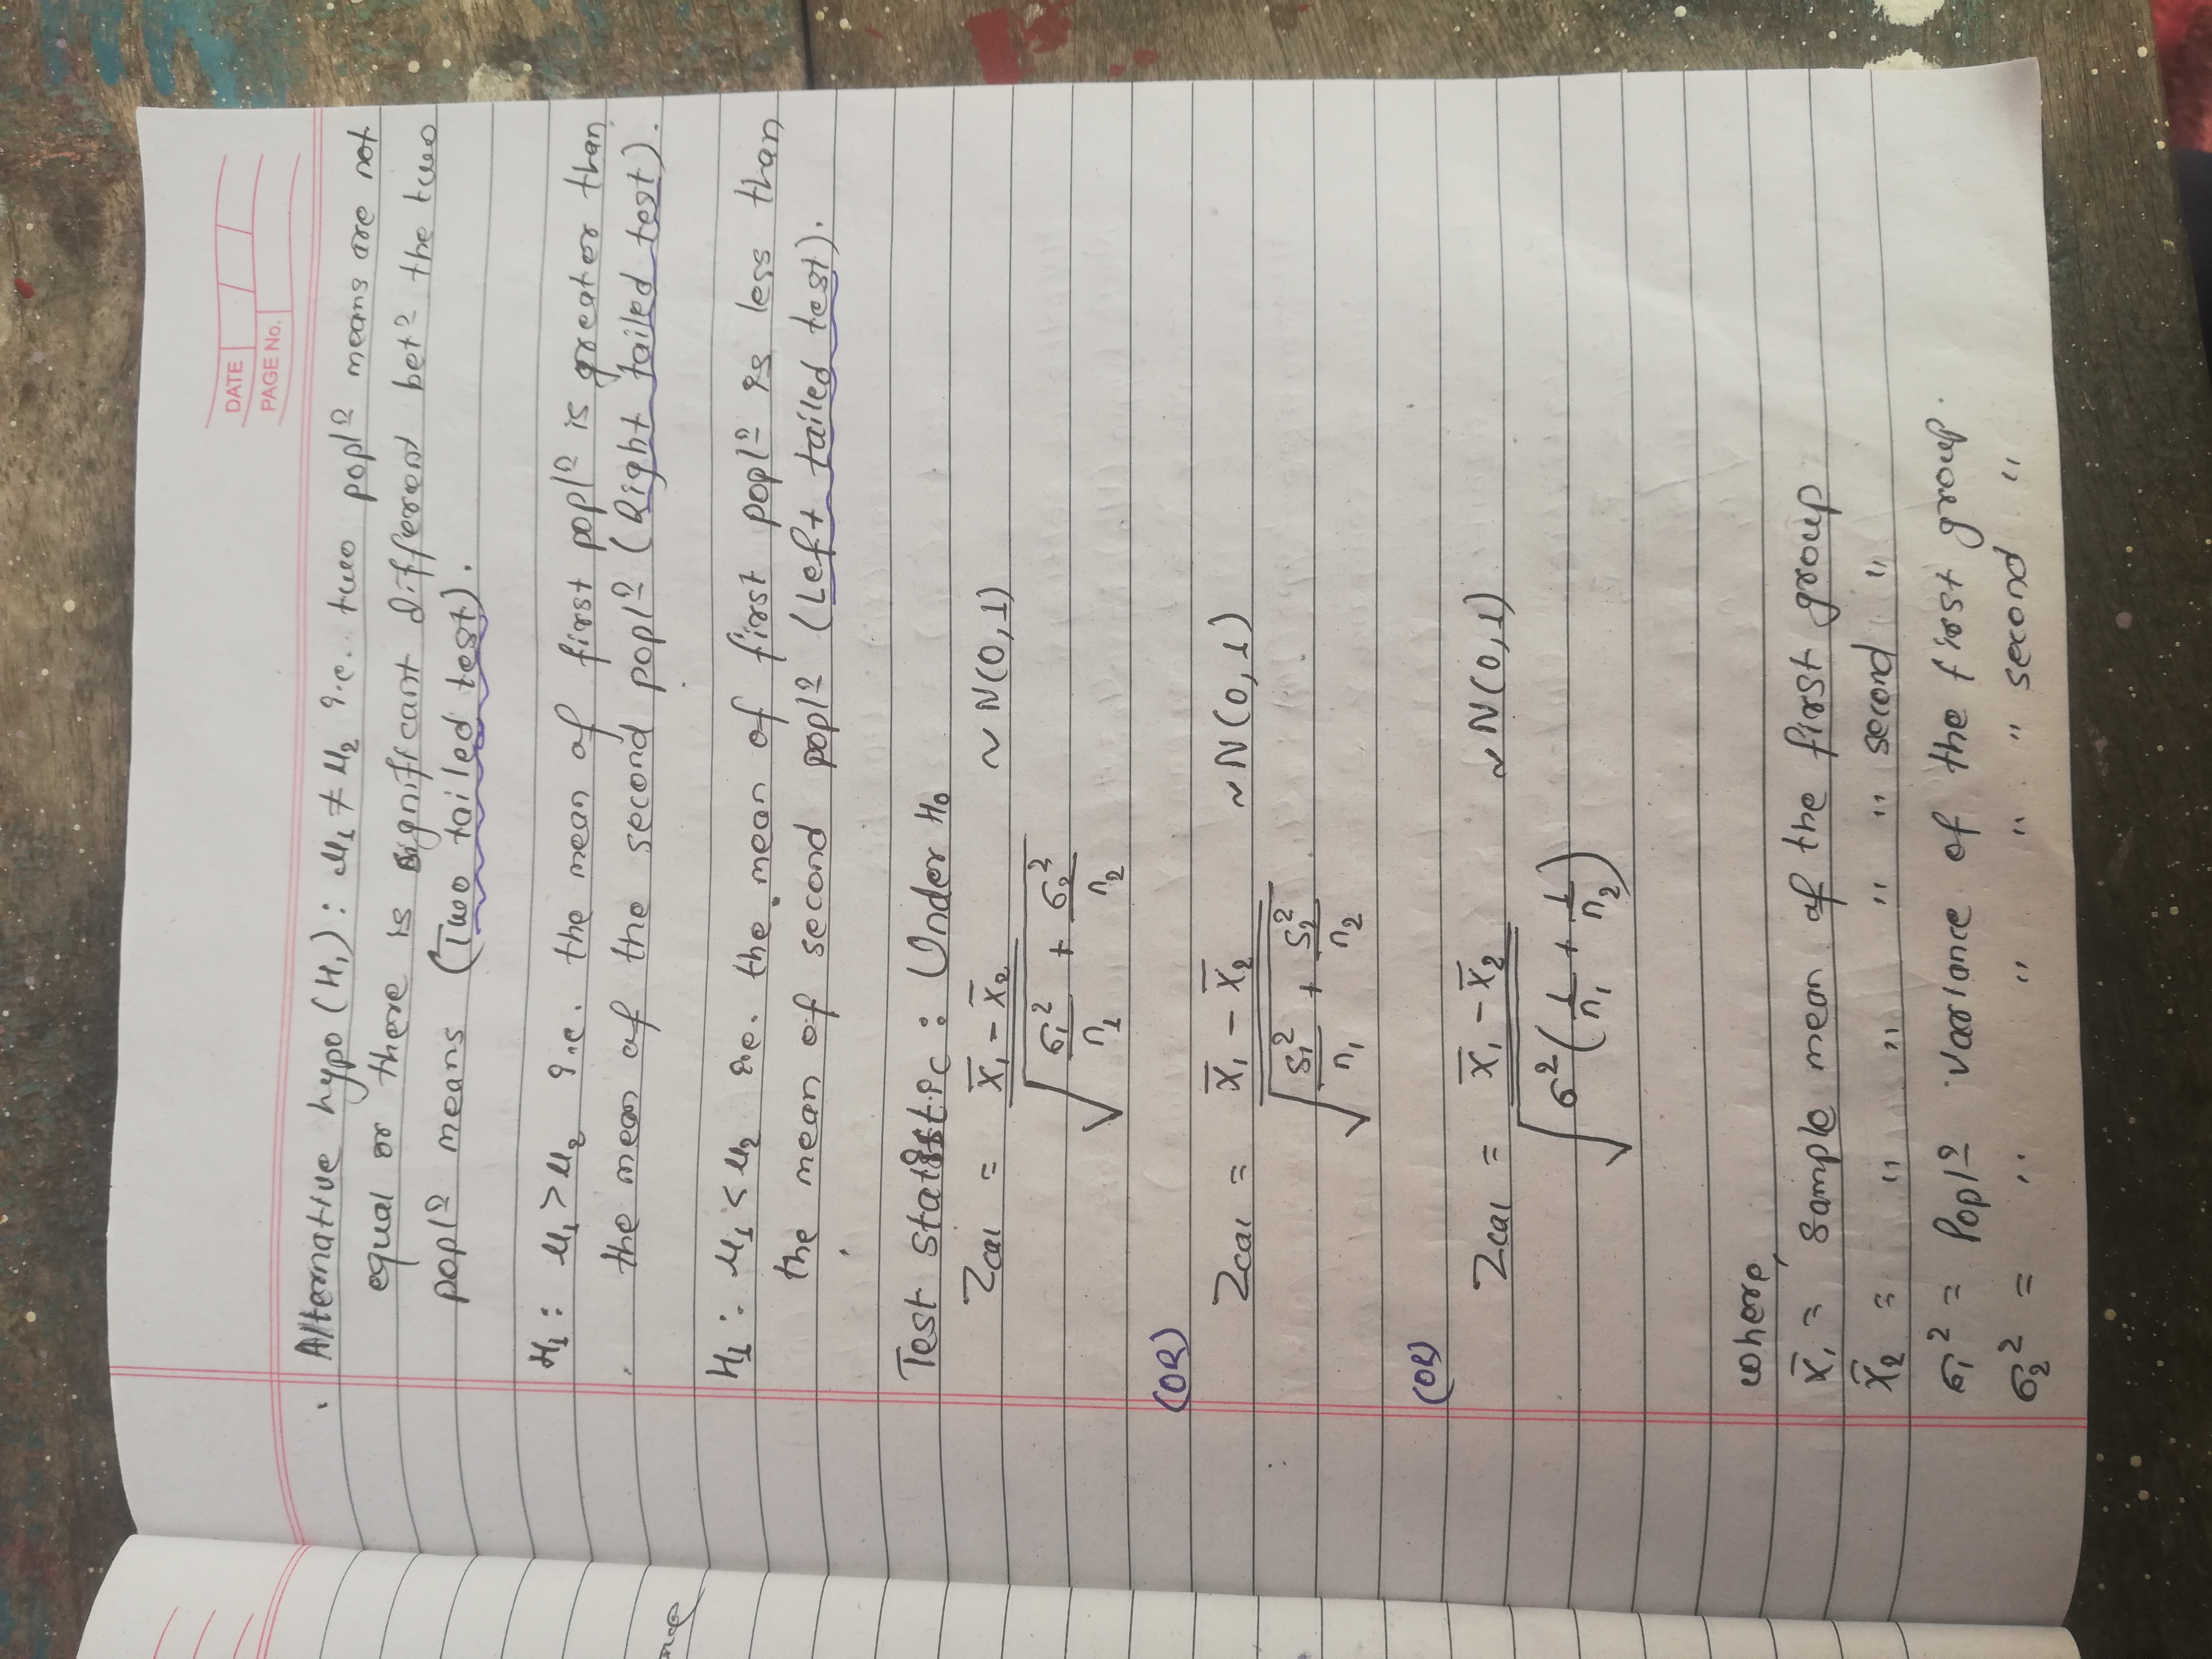 DATE
PAGE No.
Alternative hypo (H₁) : μ₁ ≠ μ₂ i.e. two poplⁿ means are not
equal or there is significant different betⁿ the two
poplⁿ means (Two tailed test).
H₁ : μ₁ > μ₂ i.e. the mean of first poplⁿ is greater than
the mean of the second poplⁿ (Right tailed test).
H₁ : μ₁ < μ₂ i.e. the mean of first poplⁿ is less than
the mean of second poplⁿ (Left tailed test).
Test statistic : Under H₀
Zcal = (x̄₁ - x̄₂) / √(σ₁²/n₁ + σ₂²/n₂) ~ N(0,1)
(OR)
Zcal = (x̄₁ - x̄₂) / √(S₁²/n₁ + S₂²/n₂) ~ N(0,1)
(OR)
Zcal = (x̄₁ - x̄₂) / √(σ²(1/n₁ + 1/n₂)) ~ N(0,1)
where,
x̄₁ = sample mean of the first group
x̄₂ = " " " " second "
σ₁² = Poplⁿ variance of the first group.
σ₂² = " " " " second "